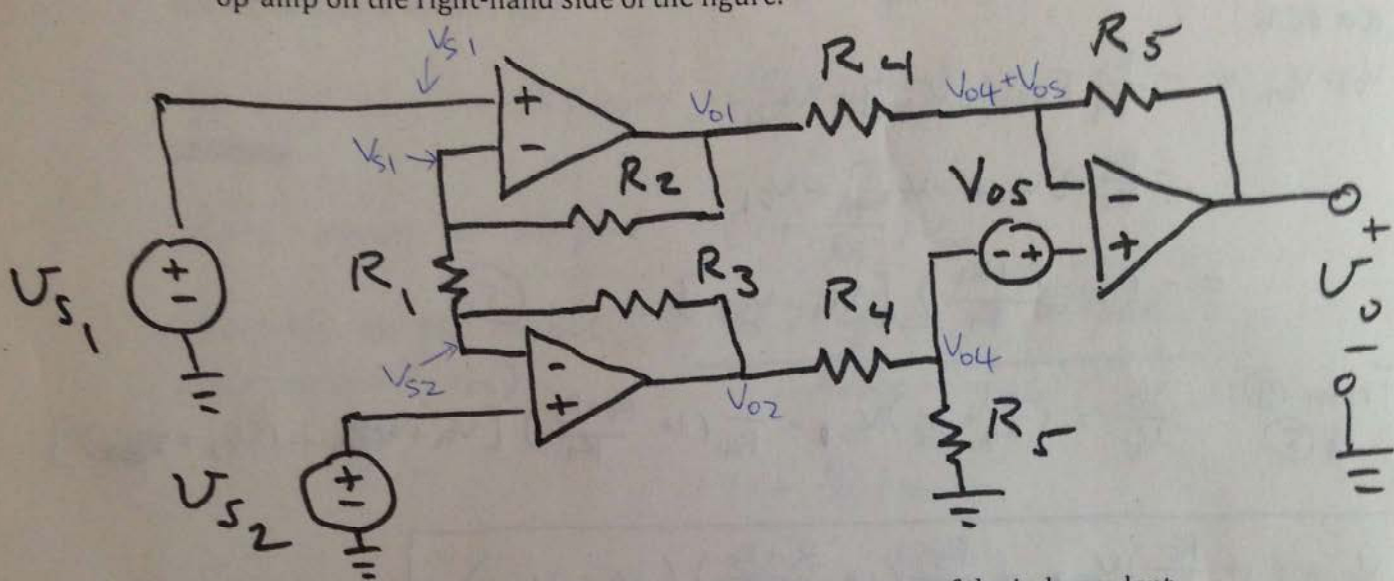 op-amp on the right-hand side of the figure.
Vs1
R4
R5
Vo1
Vo4+Vos
+
-
Vs1
R2
Vos
-
+
- +
+
-
Us1
R1
R3
R4
Vo4
+
Uo
-
Vs2
-
+
Vo2
R5
+
-
Us2